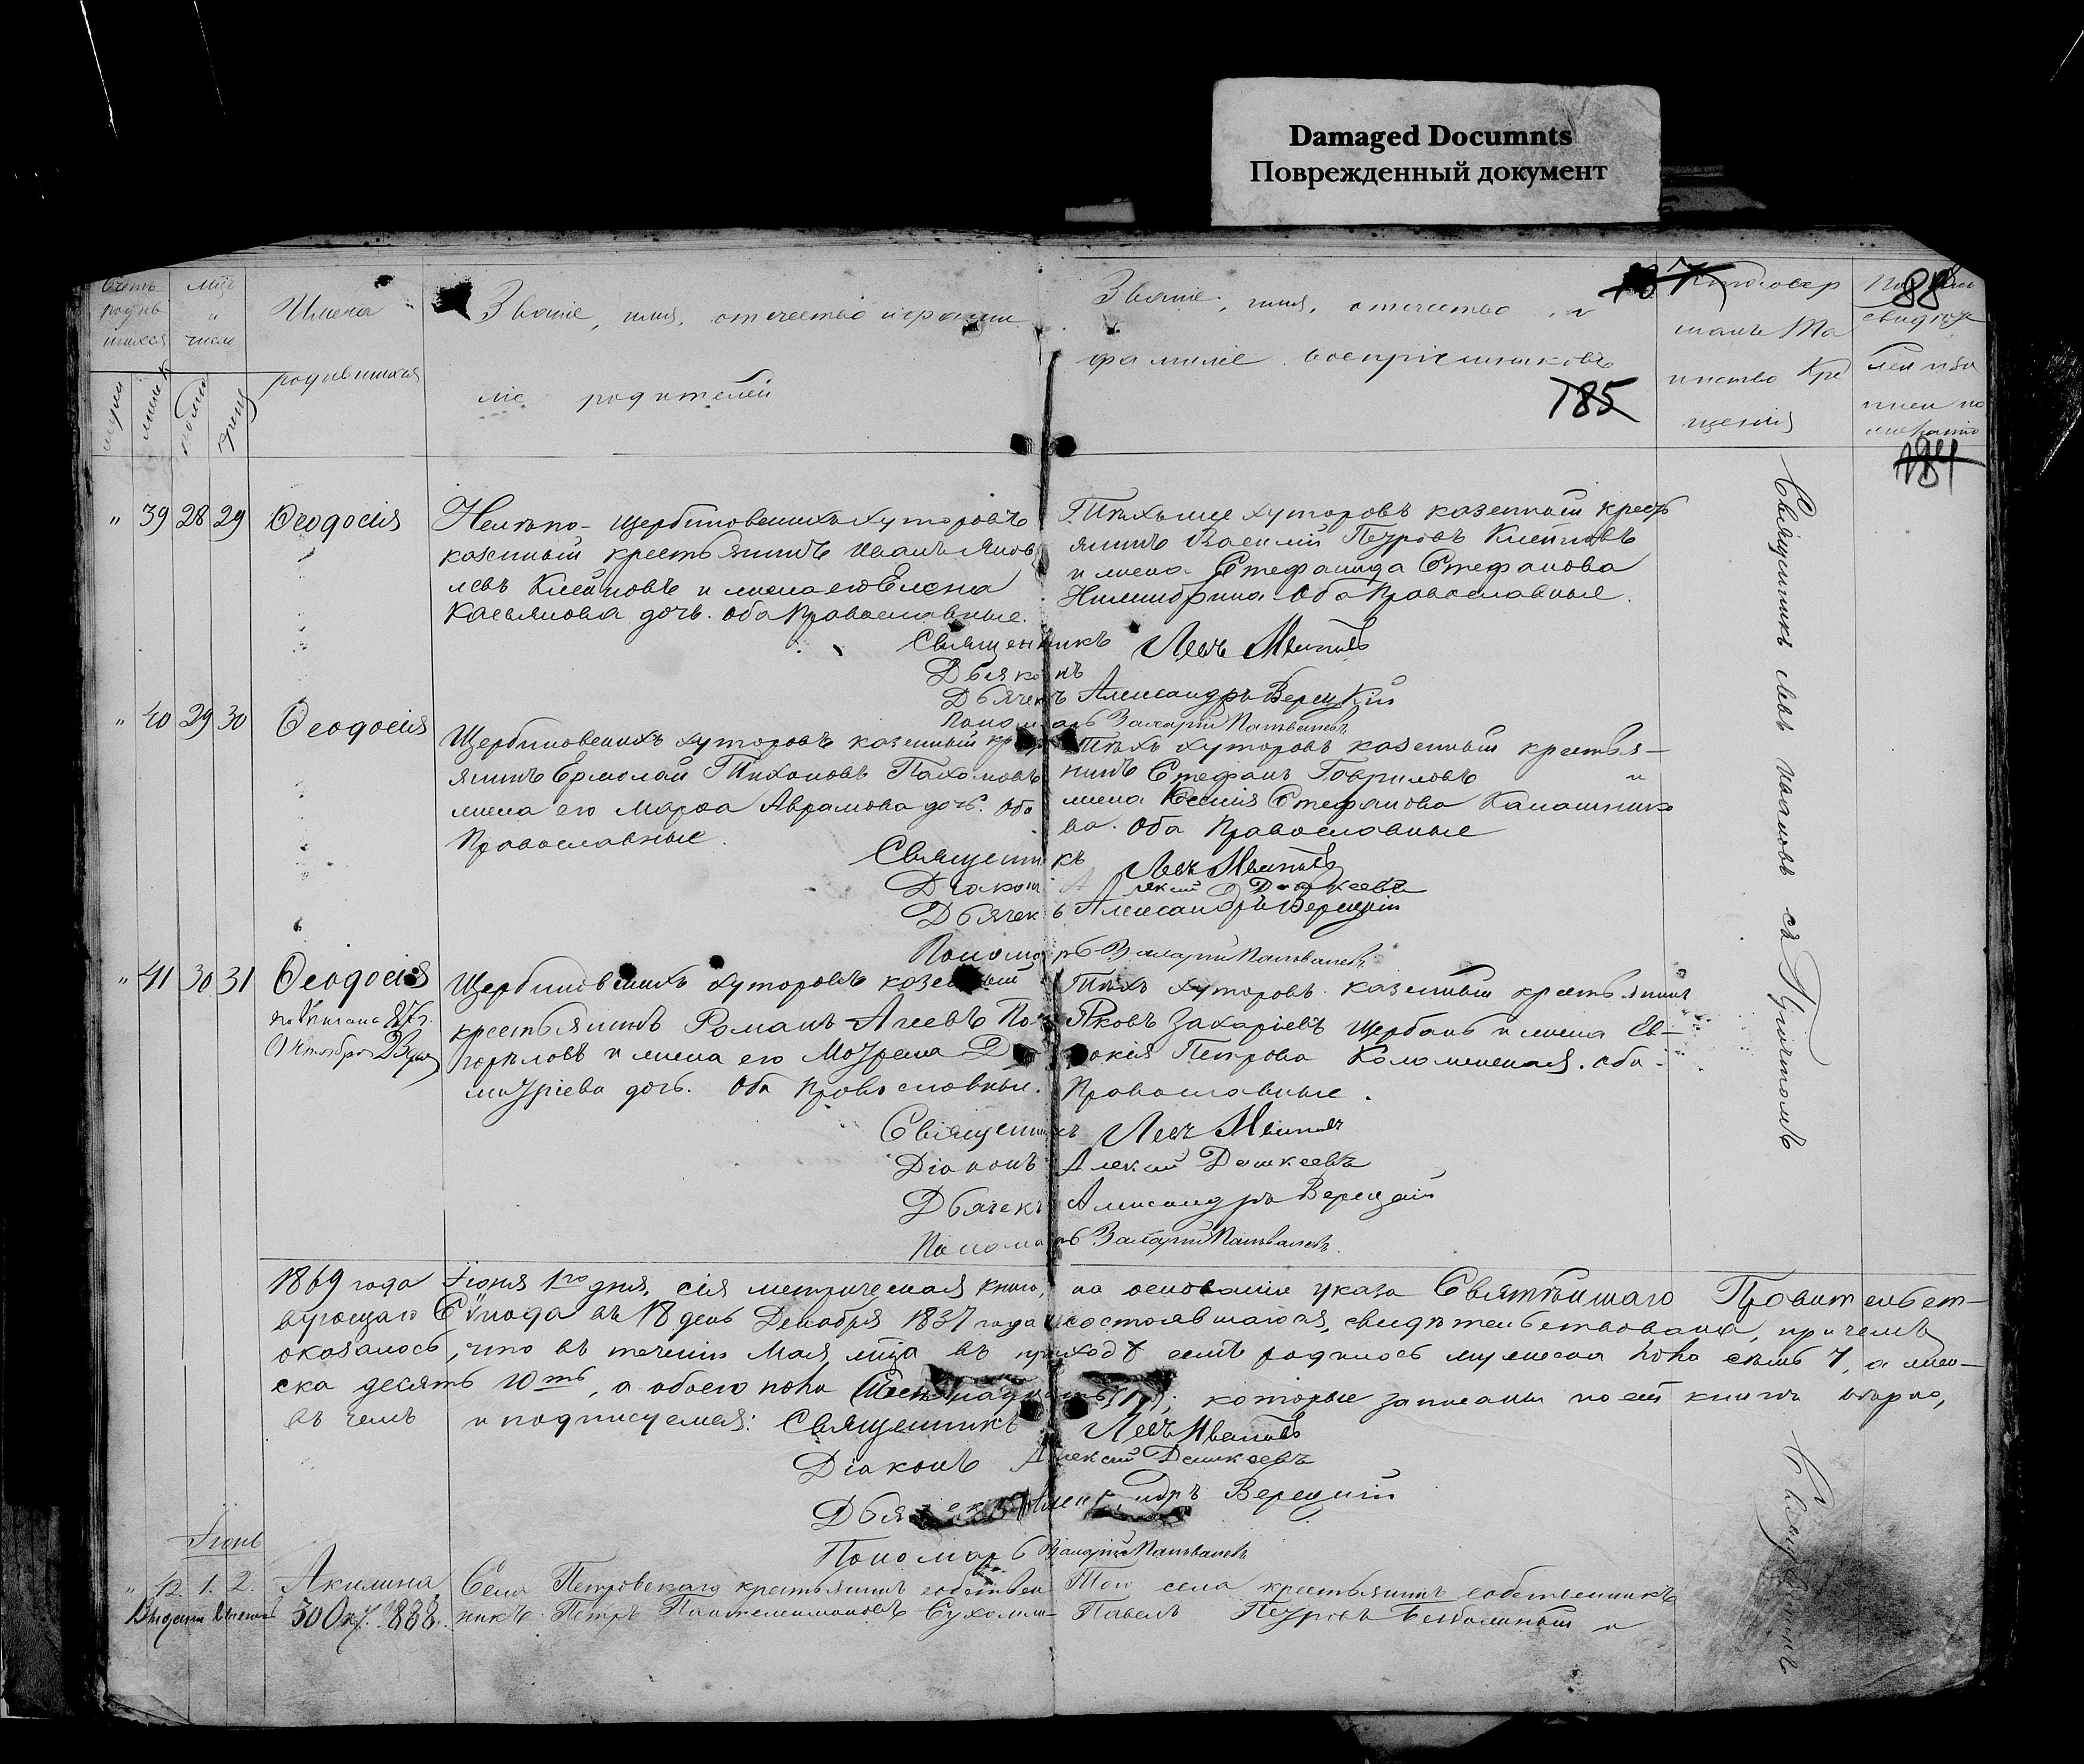 Damaged Documnts
Поврежденный документ
Счетъ родив шихся
мцъ и число
Имена родившихся
Званіе, имя, отчество и фами
ліе родителей
Званіе, имя, отчество и
фамиліе воспріемниковъ
185
88
шалъ Та
инство Кре
щенія
184
" 39 28 29 Ѳеодосія
Щербиновскихъ хуторовъ
казенный крестьянинъ Иванъ Яков
левъ и жена его Елена
Касьянова дочь. оба Православные.
Тѣхъ же хуторовъ казенный кресть
янинъ Василій Петровъ
и жена Стефанида Стефанова
Оба Православные.
Священникъ Левъ Ивановъ
Дьяконъ
Дьячекъ Александръ Верецкій
Пономарь Захарій
" 40 29 30 Ѳеодосія
Щербиновскихъ хуторовъ казенный крестъ
янинъ Ермолай Тихоновъ Пахомовъ
жена его Марѳа Аврамова дочь. Оба
Православные.
Тѣхъ хуторовъ казенный крестья-
нинъ Стефанъ Гавриловъ и
жена Ксенія Стефанова Калашнико
ва. Оба Православные
Священникъ Левъ Ивановъ
Діаконъ Алексій Дашкеевъ
Дьячекъ Александръ Верецкій
Пономарь Захарій
" 41 30 31 Ѳеодосія
Октября 23 дня
Щербиновскихъ хуторовъ казенный
крестьянинъ Романъ Агеевъ По-
и жена его Д
митріева дочь. Оба православные.
Тѣхъ хуторовъ казенный крестьянинъ
Яковъ Захаріевъ Щербань и жена Ев-
докія Петрова Коломенская. оба
Православные.
Священникъ Левъ Ивановъ
Діаконъ Алексій Дашкеевъ
Дьячекъ Александръ Верецкій
Пономарь Захарій
Священникъ Левъ Ивановъ съ Причтомъ
1869 года Іюня 1го дня, сія метрическая книга, на основаніи указа Святѣйшаго Правительст-
вующаго Сѵнода въ 18 день Декабря 1837 года состоявшагося, свидѣтельствована, причемъ
оказалось, что въ теченіи Мая мца въ приходѣ семъ родилось мужеска пола семь 7, а жен-
ска десять 10ть, а обоего пола семнадцать (17), которые записаны по сей книгѣ вѣрно,
въ чемъ и подписуемся: Священникъ Левъ Ивановъ
Діаконъ Алексій Дашкеевъ
Дьячекъ Александръ Верецкій
Пономарь Захарій
Іюнь
" 42 1. 2. Акилина
30 Окт. 1888.
Села Петровскаго крестьянинъ собствен
никъ Петръ Пантелеимоновъ Сухомли-
Того села крестьянинъ собственникъ
Павелъ Петровъ и
Священникъ